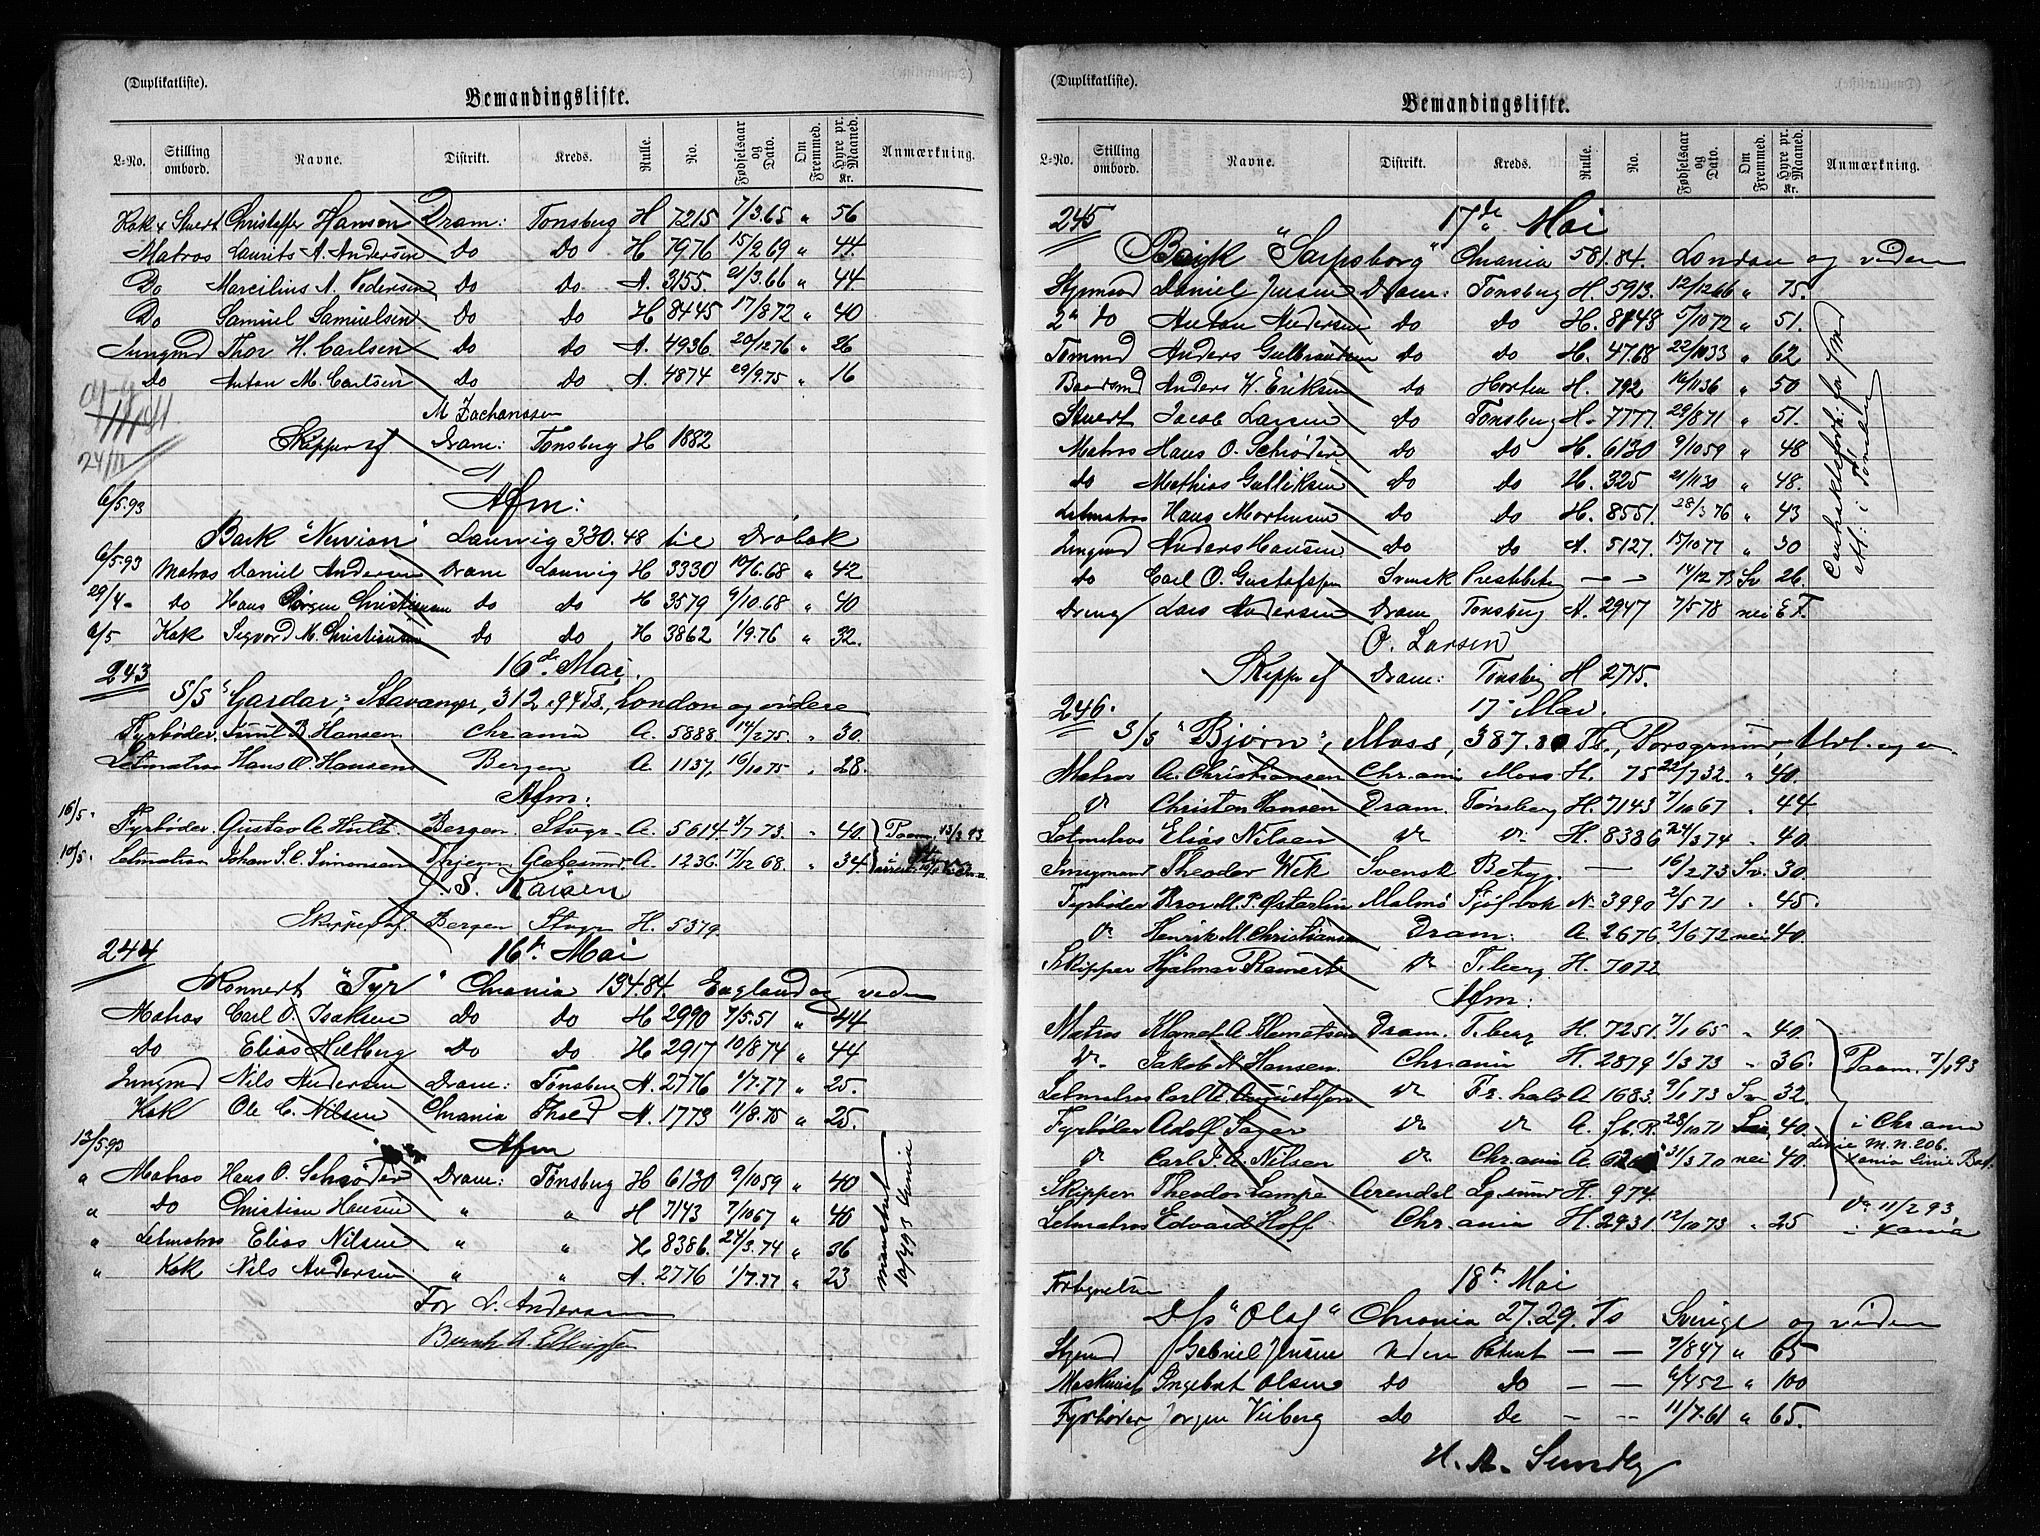 (Duplikatliste).
Bemandingsliste.
L=No. Stilling ombord. Navne. Distrikt. Kreds. Rulle. No. Fødselsaar og Dato. Om Fremmed. Hyre pr. Maaned. Kr. Anmærkning.
Kok & Stuert Christoffer Hanson Dram: Tonsberg H 7215 7/3.65 " 56
Matros Laurits A. Andersen Do Do H 7976 15/2 69 " 44.
Do Marcilius A. Pedersen Do Do A. 3155. 21/3.66 " 44
Do Samuel Samuelsen Do Do H 8445 17/8 72 " 40
Jungmd Thor H. Carlsen Do Do A. 4936 20/12 76 " 26
Do Anton M. Carlsen Do Do A. 4874 29/9.75 " 16
M Zachariassen
24/11
Skipper af. Dram: Tonsberg H 1882
6/5.93 Afm:
Bark "Nevian" Laurvig 330.48 til Drøbak
6/5.93 Matros Daniel Andersen Dram Laurvig H 3330 10/6.68 " 42
29/4 - do Hans Jørgen Christiansen do do H 3579 9/10.68 " 40
6/5 Kok Sigvord M. Christiansen do do H 3862 1/9.76 " 32.
243 16de Mai.
S/S "Gardar", Stavanger, 312.94 Ts, London og videre
Fyrbøder. Hansen Chr.ania A. 5888. 14/2 75. " 30.
Letmatros Hans O. Hansen Bergen A 1137, 16/10 75 " 28.
Afm:
16/5. Fyrbøder. Gustav A. Hult Bergen Stvgr. A. 5614 3/7 73. " 40. Paam. 13/2 93
10/5. Letmatros Johan S. C. Simonsen Thjem Aalesund A. 1236. 17/12 68. " 34.
J. S. Kaisen
Skipper af. Bergen Stvgr H. 5379.
244 16de Mai
Konnert "Tyr" Chrania 134.84. England og viden
Matros Carl O. Isaksen Do Do H 2990 7/5.51 " 44
do Elias Helberg Do Do H 2917 10/8 74 " 44
Jungmd Nils Andersen Dram: Tonsberg A. 2776 1/7.77 " 25.
Kok Ole C. Nilsen Chrania A. 1773 11/8.75 " 25.
13/5.93 Afm
" Matros Hans O. Schrøder Dram: Tonsberg H 6130 9/10 59 " 40
" Do Christian Hansen " " H 7143 7/10 67 " 40
" Letmatros Elias Nilsen " " H 8386. 24/3.74 " 36
" Kok Nils Andersen " " A. 2776 1/7.77 " 23
mønstret 10/4 93 Xania
For L. Andersen
Bernh. A. Ellingsen
(Duplikatliste).
Bemandingsliste.
L=No. Stilling ombord. Navne. Distrikt. Kreds. Rulle. No. Fødselsaar og Dato. Om Fremmed. Hyre pr. Maaned. Kr. Anmærkning.
245 17de Mai
Bark "Sarpsborg" Chrania 581.84. London og viden
Styrmand Daniel Jensen Dram: Tonsberg H. 5913. 12/12 66 " 75.
2n do Anton Andersen do do H. 8748 5/10 72 " 51.
Tømmd Anders Gulbrandsen do do H. 4768 22/10 33 " 62
Baadsmd Anders W. Eriksen do Horten H. 792 16/11 36 " 50
Stuert Jacob Larsen do Tonsberg H. 7777. 29/8 71 " 51.
Matros Hans O. Schrøder do do H. 6130 9/10 59 " 48
do Mathias Gulliksen do do H. 325 21/11 30 " 48.
Letmatros Hans Mortensen do do H. 8551. 28/3 76 " 43
Jungmd Anders Hansen do do A. 5127. 15/10 77 " 30
do Carl O. Gustafsson Svensk Prestebetyg — — 14/12 73 Sv 26.
Dreng Lars Andersen Dram Tonsberg A. 2947 7/5 78 nei E F.
O. Larsen
Skipper af Dram: Tonsbg H 2745.
246. 17. Mai.
S/S "Bjørn", Moss, 387.80 Ts, Porsgrund - Utl. og v.
Matros A. Christiansen Chr.ani Moss H. 75 22/7 32. " 40.
do Christen Hansen Dram. Tønsberg H. 7143 7/10 67 " 44.
Letmatros Elias Nilsen do do H. 8386 24/3 74 " 40.
Jungmand Theodor Wek Svensk Betyg. — 16/2 73 Sv. 30.
Fyrbøder P. Østerlin Malmö N. 3990 2/5 71 " 45.
do Henrik M. Christiansen Dram. A. 2676 2/6 72 nei 40.
Skipper Hjalmar Reinert do T.berg. H. 7072
Afm:
Matros Klemet A. Klemetsen Dram. T.berg H. 7251. 7/1 65 " 40.
do Jakob A. Hansen Chr.ania H. 2879 1/3 73 " 36. Paam. 7/1 93
Letmatros Carl A. Augustsson do Fr. hald A 1683. 9/1 73 Sv 32.
Fyrbøder Adolf do do A. 28/10 71 40. i Chr.ania
do Carl J. A. Nilsen do Chr.ania A. 31/3 70 nei 40. M.N. 206.
Skipper Theodor Lampe Arendal H. 974.
Letmatros Edvard Hoff Chr.ania H. 2931. 12/10 73 " 25 do 11/2 93 i Xania
18de Mai
D/s "Olaf" Chrania 27.29. Ts Sverige og viden
Stymd Gabriel Jensen Uden Patent — — 7/8 47 " 65
Maskinist Ingebret Olsen do Do — — 6/4 52 " 100
Fyrbøder Jørgen Viberg do Do — — 11/7.61 " 65.
H. A. Sundby